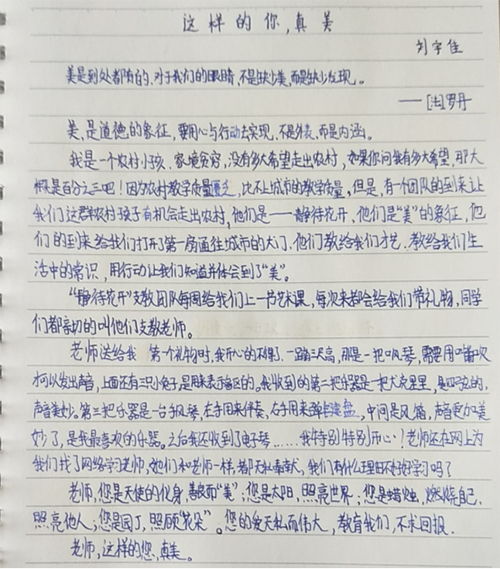 这样的你,真美
刘宇佳
美是到处都有的,对于我们的眼睛,不是缺少美,而是缺少发现。
——[法]罗丹
美,是道德的象征,要用心与行动去实现,不是外表,而是内涵。
我是一个农村小孩,家境贫穷,没有多大希望走出农村,如果你问我有多大希望,那大
概是百分之三吧!因为农村教学质量匮乏,比不上城市的教学质量,但是,有一个团队的到来让
我们这群农村孩子有机会走出农村,他们是——静待花开,他们是“美”的象征,他
们的到来给我们打开了第一扇通往城市的大门,他们教给我们才艺,教给我们生
活中的常识,用行动让我们知道并体会到了“美”。
“静待花开”支教团队每周给我们上一节艺术课,每次来都会给我们带礼物,同学
们都亲切的叫他们支教老师。
老师送给我 第一个礼物时,我开心的不得了,一蹦三尺高,那是一把口风琴,需要用嘴吹
才可以发出声音,上面还有三只小兔子,是用来表示音区的,我收到的第二把乐器是一把尤克里里,是四弦的,
声音美妙。第三把乐器是一台手风琴,左手用来伴奏,右手用来弹键盘,中间是风箱,声音更加美
妙了,是我最喜欢的乐器。之后我还收到了电子琴……我特别特别开心!老师还在网上为
我们找了网络学习老师,她们和老师一样,都无私奉献,我们有什么理由不好好学习吗?
老师,您是天使的化身,善良而“美”;您是太阳,照亮世界;您是蜡烛,燃烧自己,
照亮他人;您是园丁,照顾“花朵”。您的爱无私而伟大,教育我们,不求回报。
老师,这样的您,真美。